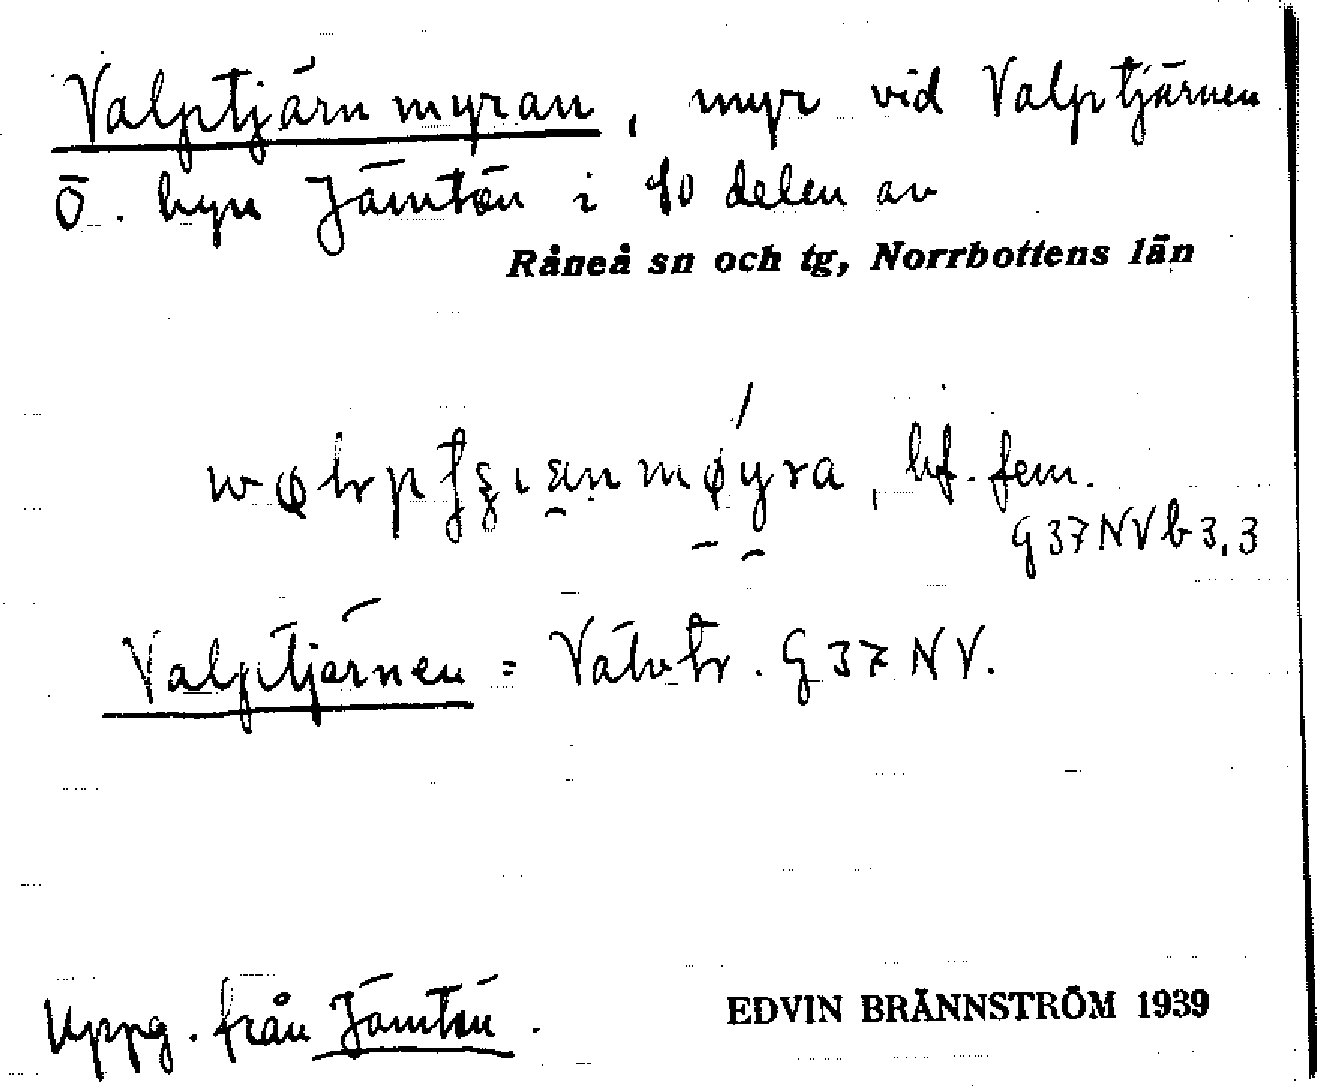 Valptjärnmyran, myr vid Valptjärnen
Ö. byn Jämtön i SO delen av
Råneå sn och tg, Norrbottens län
bf. fem.
G 37 NV b 3,3
Valptjärnen = G 37 NV.
Uppg. från Jämtön.
EDVIN BRÄNNSTRÖM 1939